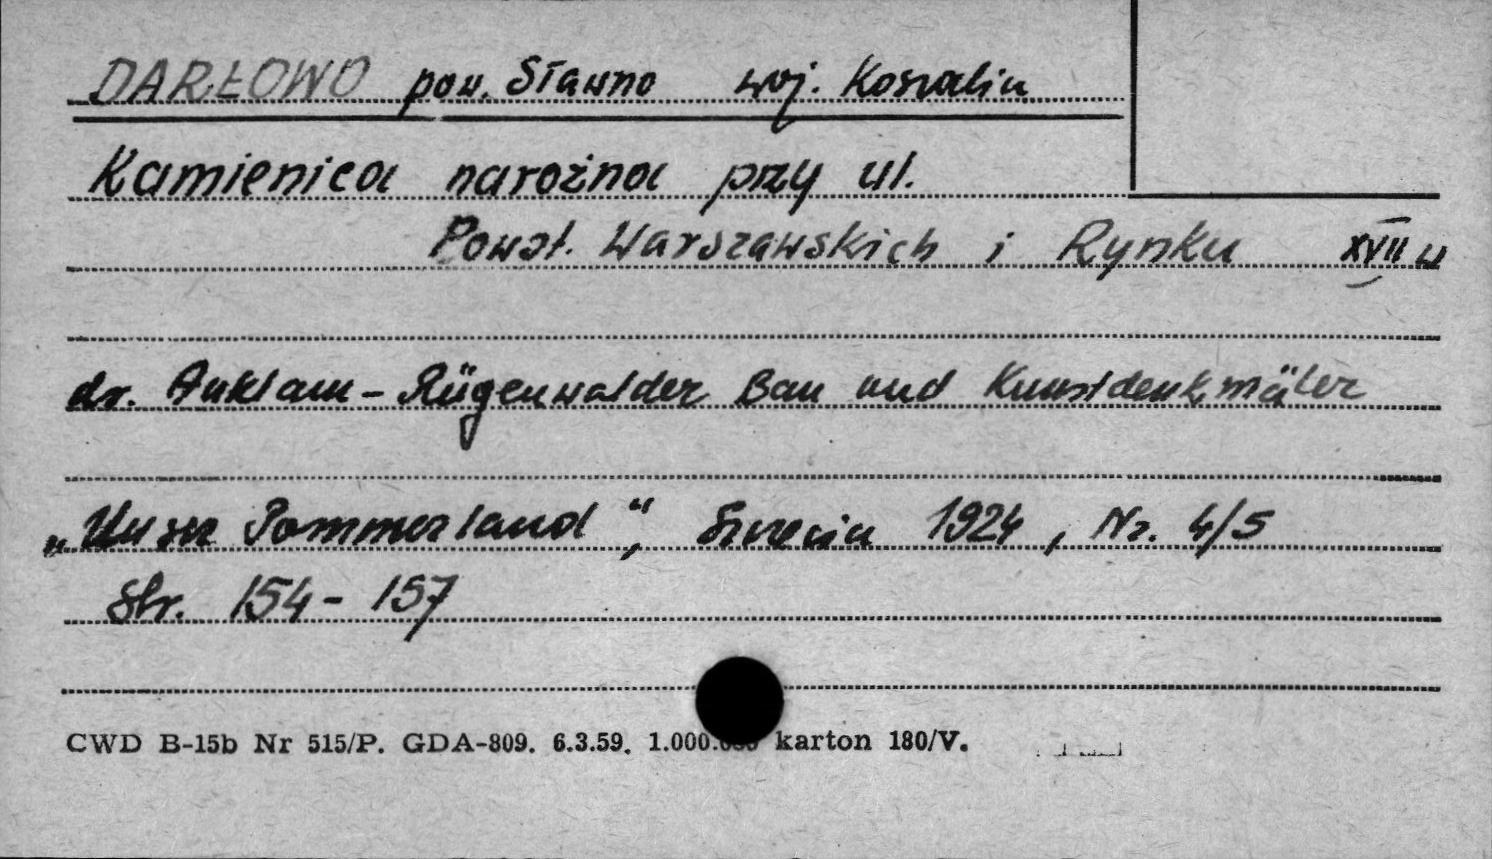 DARŁOWO pow. Sławno woj. Koszalin
Kamienica narożna przy ul.
Powst. Warszawskich i Rynku XVII w
dr. Anklam - Rügenwalder Bau und Kunstdenkmäler
„Unser Pommerland", Szczecin 1924, Nr. 4/5
Str. 154 - 157
CWD B-15b Nr 515/P. GDA-809. 6.3.59. 1.000.000 karton 180/V.